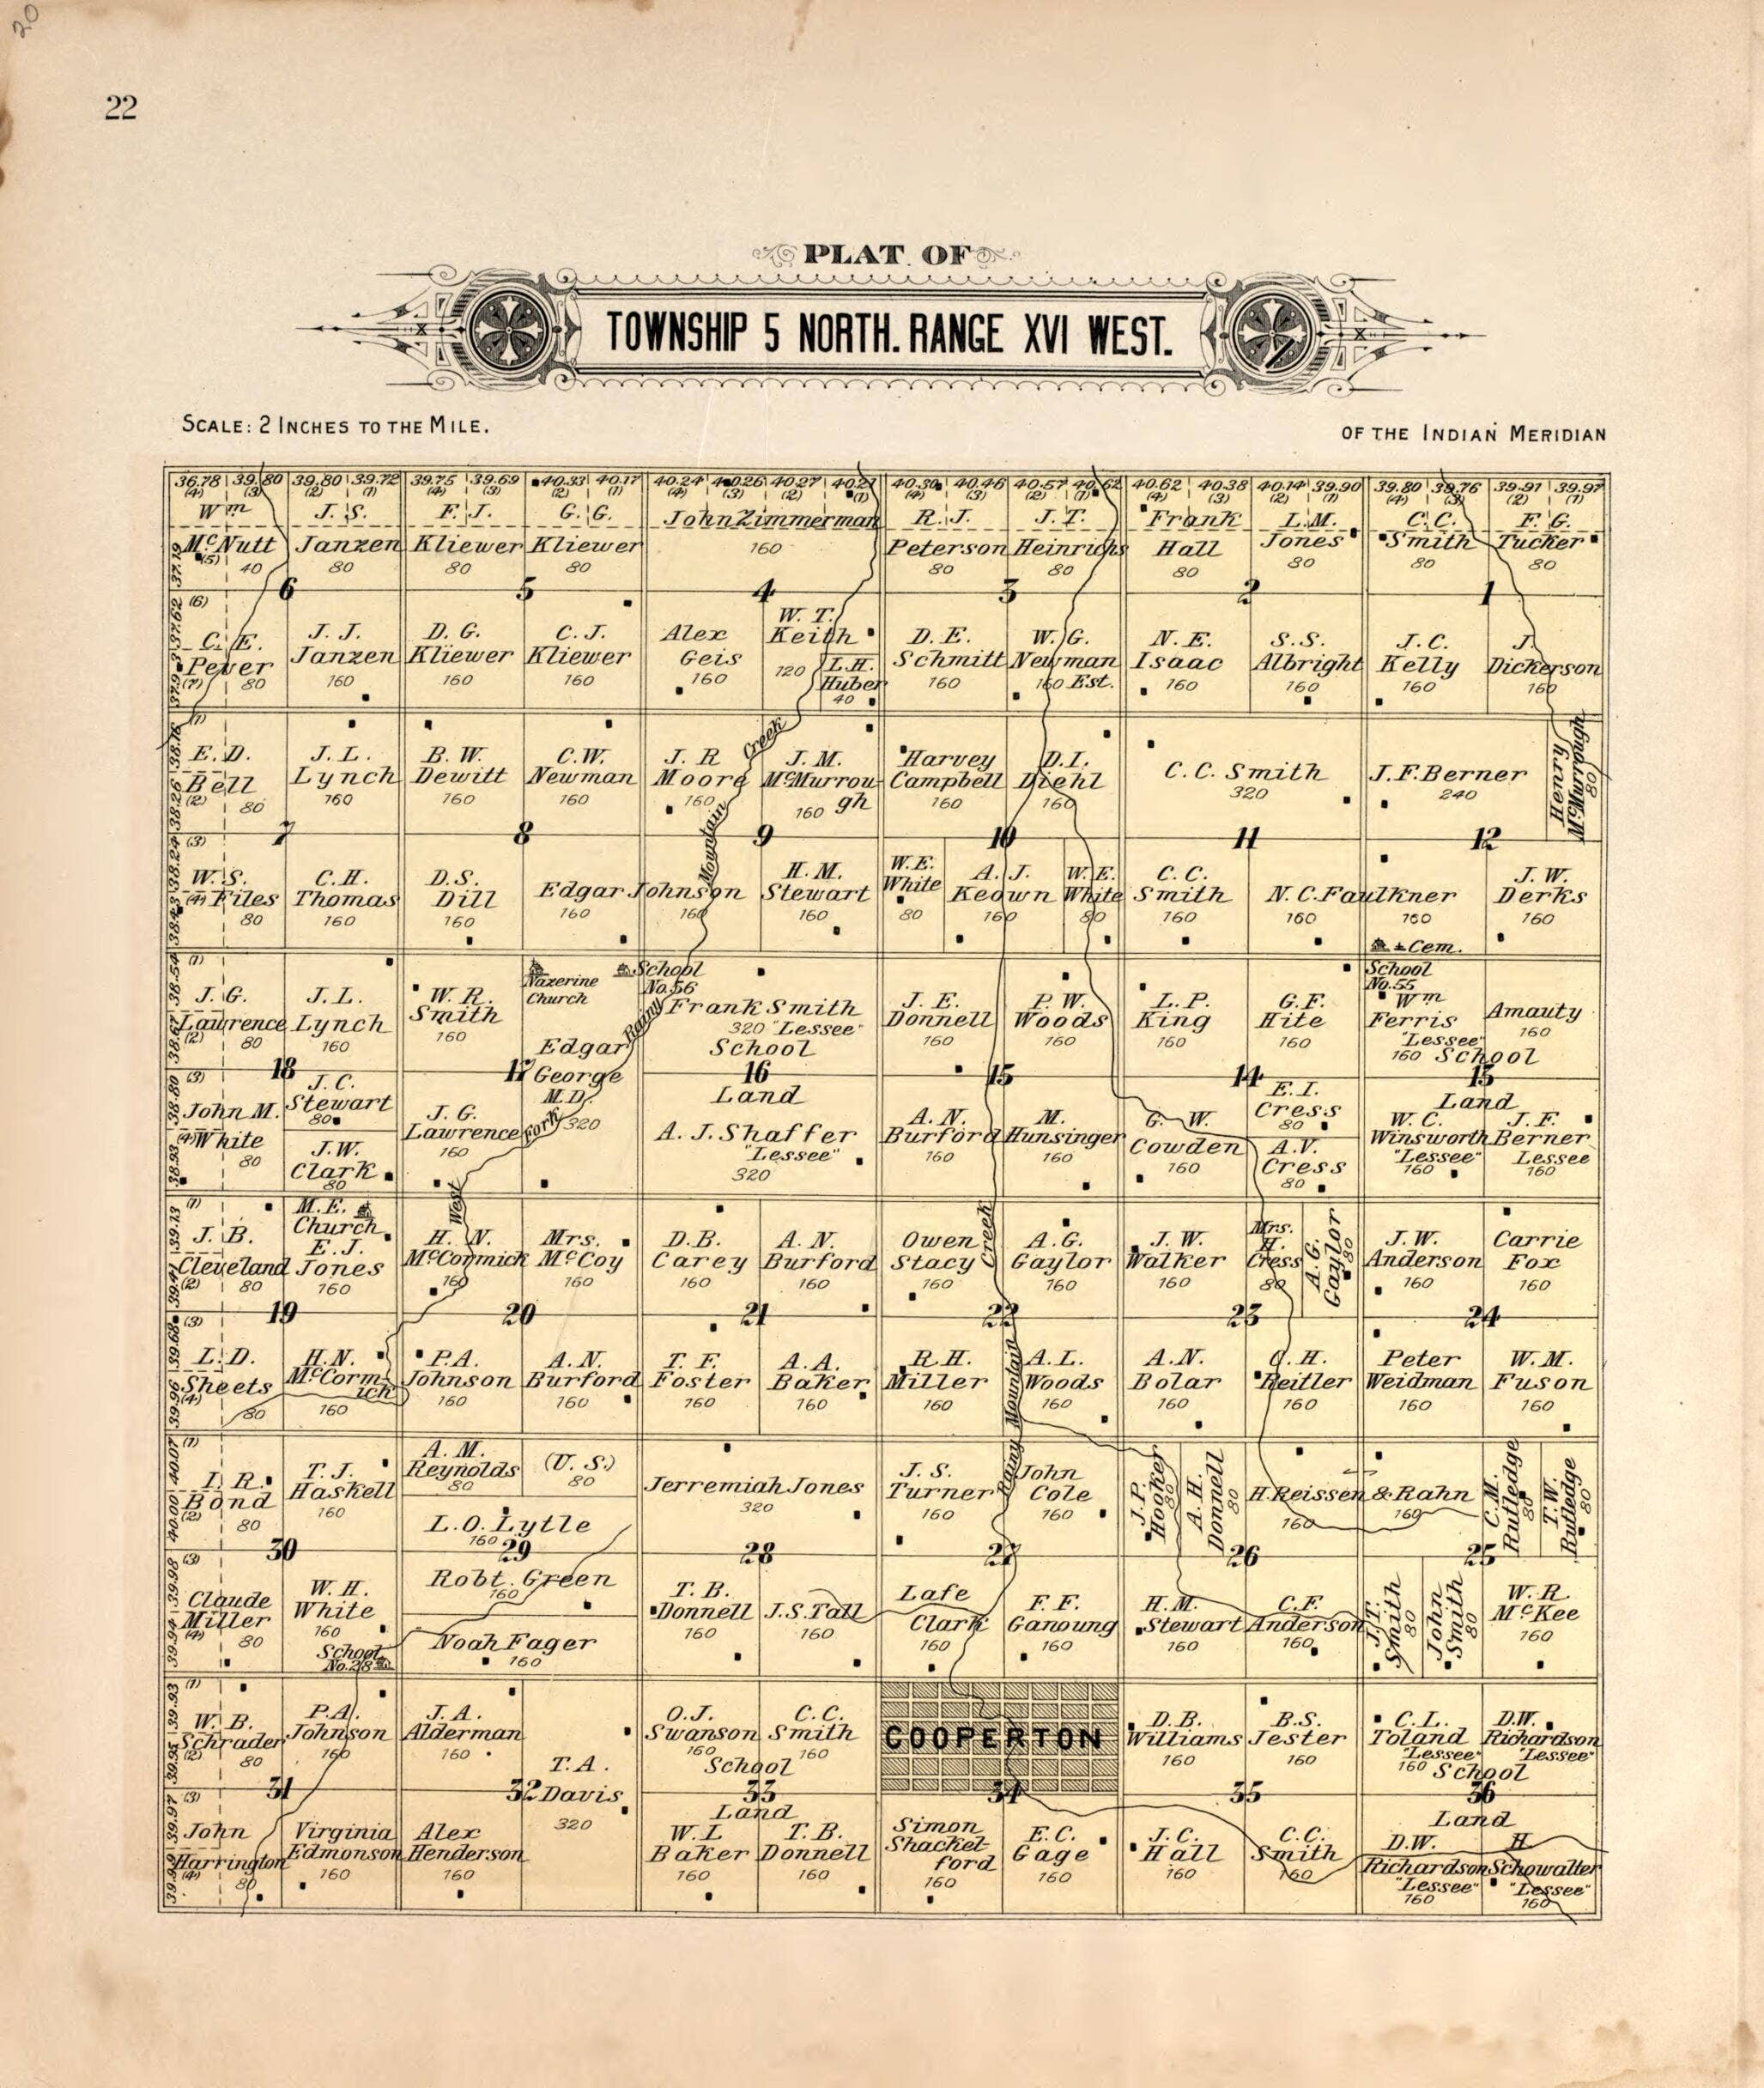 20
22
PLAT OF
TOWNSHIP 5 NORTH. RANGE XVI WEST.
SCALE: 2 INCHES TO THE MILE.
OF THE INDIAN MERIDIAN
36.78 39.80 39.80 39.72 39.75 39.69 40.33 40.17 40.24 40.26 40.27 40.27 40.30 40.46 40.57 40.62 40.62 40.38 40.14 39.90 39.80 39.76 39.91 39.97
(4) (3) (2) (1) (4) (3) (2) (1) (4) (3) (2) (1) (4) (3) (2) (1) (4) (3) (2) (1) (4) (3) (2) (1)
Wm
McNutt
(5) 40
37.19
J. S.
Janzen
80
F. J.
Kliewer
80
G. G.
Kliewer
80
John Zimmerman
160
R. J.
Peterson
80
J. T.
Heinrichs
80
Frank
Hall
80
L. M.
Jones
80
C. C.
Smith
80
F. G.
Tucker
80
6 5 4 3 2 1
(6)
37.62
C. E.
Pever
(7) 80
J. J.
Janzen
160
D. G.
Kliewer
160
C. J.
Kliewer
160
Alex
Geis
160
W. T.
Keith
120
L. H.
Huber
40
D. E.
Schmitt
160
W. G.
Newman
160 Est.
N. E.
Isaac
160
S. S.
Albright
160
J. C.
Kelly
160
J.
Dickerson
160
(1)
38.16
E. D.
Bell
(2) 80
38.26
J. L.
Lynch
160
B. W.
Dewitt
160
C. W.
Newman
160
J. R
Moore
160
Creek
J. M.
McMurrou
gh
160
Harvey
Campbell
160
D. I.
Diehl
160
C. C. Smith
320
J. F. Berner
240
Henry
McMurrough
80
7 8 9 10 11 12
Mountain
(3)
38.24
W. S.
Files
(4) 80
C. H.
Thomas
160
D. S.
Dill
160
Edgar Johnson
160 160
H. M.
Stewart
160
W. E.
White
80
A. J.
Keown
160
W. E.
White
80
C. C.
Smith
160
N. C. Faulkner
160 160
J. W.
Derks
160
Cem.
(1)
38.54
J. G.
Lawrence
(2) 80
38.67
J. L.
Lynch
160
W. R.
Smith
160
Nazerine
Church
School
No. 56
Rainy
Edgar
George
M. D.
320
Frank Smith
320 "Lessee"
School
Land
J. E.
Donnell
160
P. W.
Woods
160
L. P.
King
160
G. F.
Hite
160
School
No. 55
Wm
Ferris
"Lessee"
160
Amauty
160
School
Land
18 17 16 15 14 13
(3)
38.80
John M.
White
(4) 80
38.93
J. C.
Stewart
80
J. W.
Clark
80
J. G.
Lawrence
160
Fork
West
A. J. Shaffer
"Lessee"
320
A. N.
Burford
160
M.
Hunsinger
160
G. W.
Cowden
160
E. I.
Cress
80
A. V.
Cress
80
W. C.
Winsworth
"Lessee"
160
J. F.
Berner
Lessee
160
(1)
39.13
J. B.
Cleveland
(2) 80
39.41
M. E.
Church
E. J.
Jones
160
H. N.
McCormick
160
Mrs.
McCoy
160
D. B.
Carey
160
A. N.
Burford
160
Owen
Stacy
160
Creek
A. G.
Gaylor
160
J. W.
Walker
160
Mrs.
H.
Cress
80
A. G.
Gaylor
80
J. W.
Anderson
160
Carrie
Fox
160
19 20 21 22 23 24
(3)
39.68
L. D.
Sheets
(4) 80
39.96
H. N.
McCorm
ick
160
P. A.
Johnson
160
A. N.
Burford
160
T. F.
Foster
160
A. A.
Baker
160
R. H.
Miller
160
Mountain
A. L.
Woods
160
A. N.
Bolar
160
C. H.
Reitler
160
Peter
Weidman
160
W. M.
Fuson
160
(1)
40.07
I. R.
Bond
(2) 80
40.00
T. J.
Haskell
160
A. M.
Reynolds
80
(U. S.)
80
L. O. Lytle
160
Jerremiah Jones
320
J. S.
Turner
160
Rainy
John
Cole
160
J. P.
Hooker
80
A. H.
Donnell
80
H. Reissen & Rahn
160 160
C. M.
Rutledge
80
T. W.
Rutledge
80
30 29 28 27 26 25
(3)
39.98
Claude
Miller
(4) 80
39.94
W. H.
White
160
School
No. 28
Robt. Green
160
Noah Fager
160
T. B.
Donnell
160
J. S. Tall
160
Lafe
Clark
160
F. F.
Ganoung
160
H. M.
Stewart
160
C. F.
Anderson
160
J. T.
Smith
80
John
Smith
80
W. R.
McKee
160
(1)
39.93
W. B.
Schrader
(2) 80
39.95
P. A.
Johnson
160
J. A.
Alderman
160
T. A.
Davis
320
O. J.
Swanson
160
C. C.
Smith
160
School
Land
COOPERTON
D. B.
Williams
160
B. S.
Jester
160
C. L.
Toland
"Lessee"
160
D. W.
Richardson
"Lessee"
School
Land
31 32 33 34 35 36
(3)
39.97
John
Harrington
(4) 80
39.99
Virginia
Edmonson
160
Alex
Henderson
160
W. I.
Baker
160
T. B.
Donnell
160
Simon
Shackel-
ford
160
E. C.
Gage
160
J. C.
Hall
160
C. C.
Smith
160
D. W.
Richardson
"Lessee"
160
H
Schowalter
"Lessee"
160